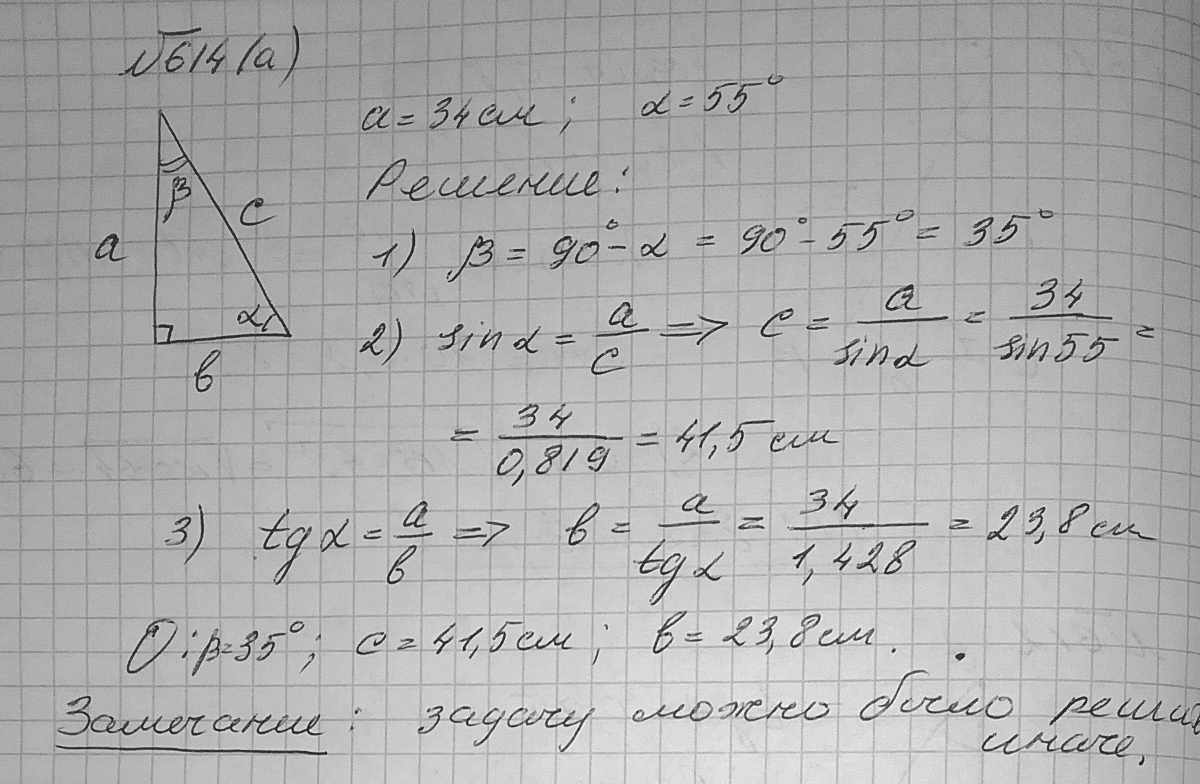 №614(а)
a = 34 см ; α = 55°
Решение:
β
c
a
α
b
1) β = 90° - α = 90° - 55° = 35°
2) sin α = a/c => c = a/sin α = 34/sin 55 =
= 34/0,819 = 41,5 см
3) tg α = a/b => b = a/tg α = 34/1,428 = 23,8 см
О: β = 35° ; c = 41,5 см ; b = 23,8 см.
Замечание : задачу можно было решить
иначе.